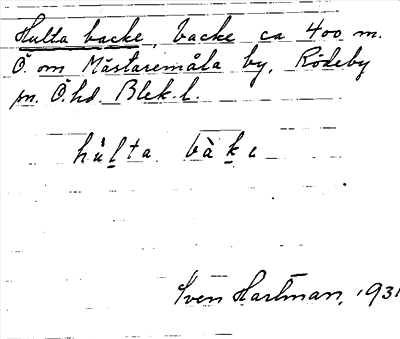 Hulta backe, backe ca 400 m.
Ö. om Mästaremåla by, Rödeby
sn. Ö. hd. Blek. l.
hùlta bàke
Sven Hartman, 1931